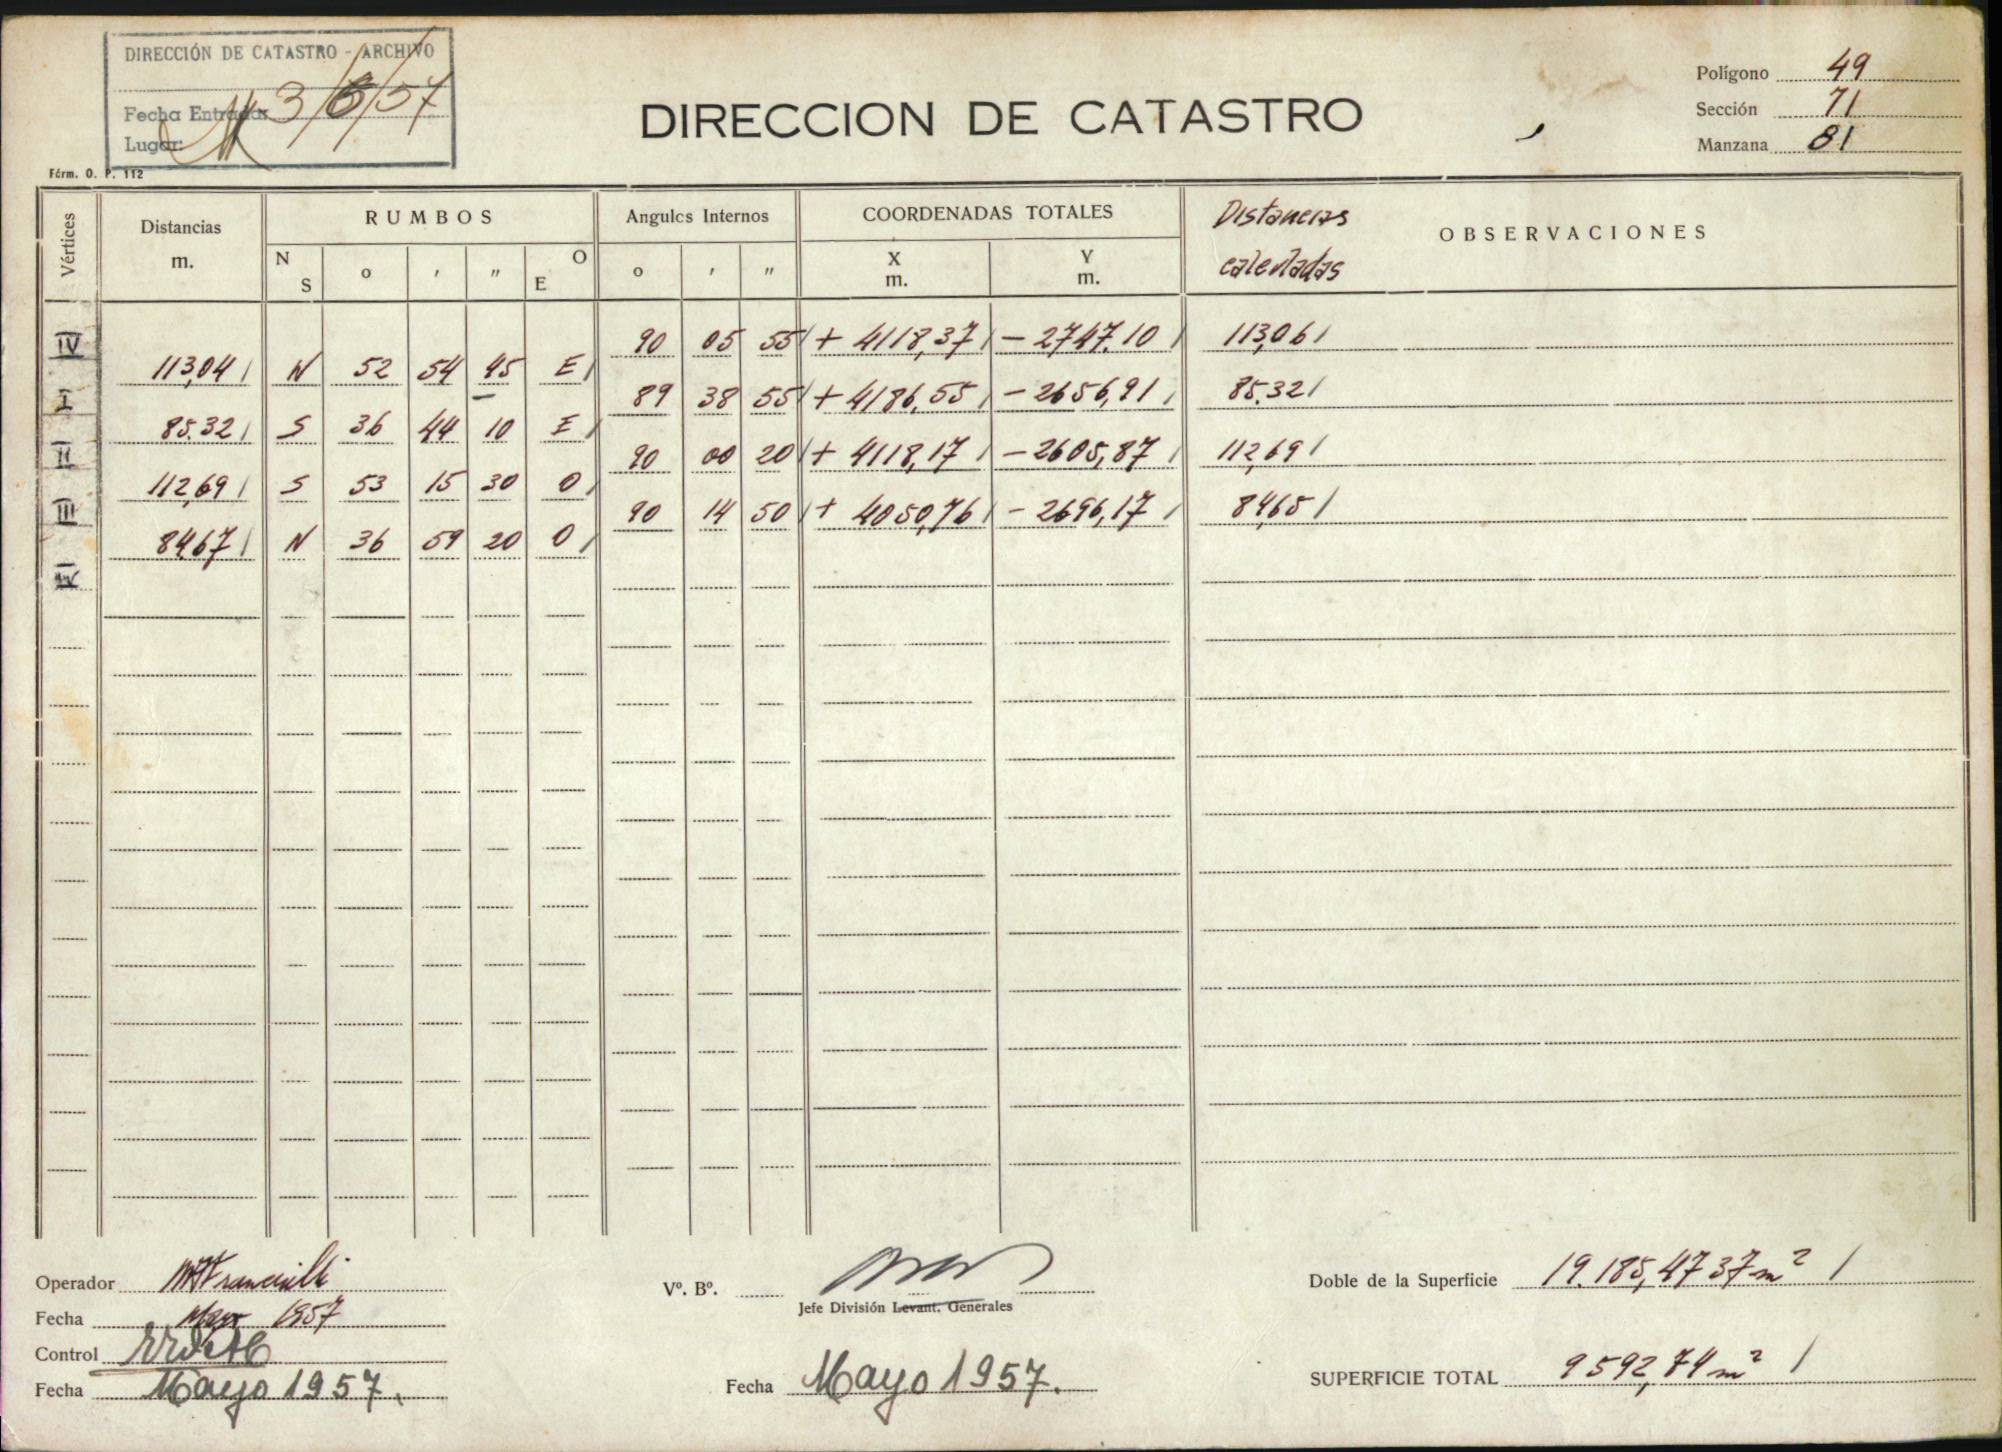 DIRECCIÓN DE CATASTRO - ARCHIVO
Fecha Entrada: 3/6/57
Lugar:
Fórm. O. P. 112
DIRECCION DE CATASTRO
Polígono 49
Sección 71
Manzana 81
Vértices Distancias m. RUMBOS Angulos Internos COORDENADAS TOTALES Distancias calculadas OBSERVACIONES
N S o ' " O E o ' " X m. Y m.
IV 90 05 55 + 4118,37 - 2747,10 113,06
113,04 N 52 54 45 E
I 89 38 55 + 4186,55 - 2656,91 85.32
85.32 S 36 44 10 E
II 90 00 20 + 4118,17 - 2605,87 112,69
112,69 S 53 15 30 O
III 90 14 50 + 4050,76 - 2696,17 84,65
84,67 N 36 59 20 O
IV
Operador
Fecha Mayo 1957
Control
Fecha Mayo 1957.
Vº. Bº.
Jefe División Levant. Generales
Fecha Mayo 1957.
Doble de la Superficie 19.185,4737 m²
SUPERFICIE TOTAL 9592,74 m²